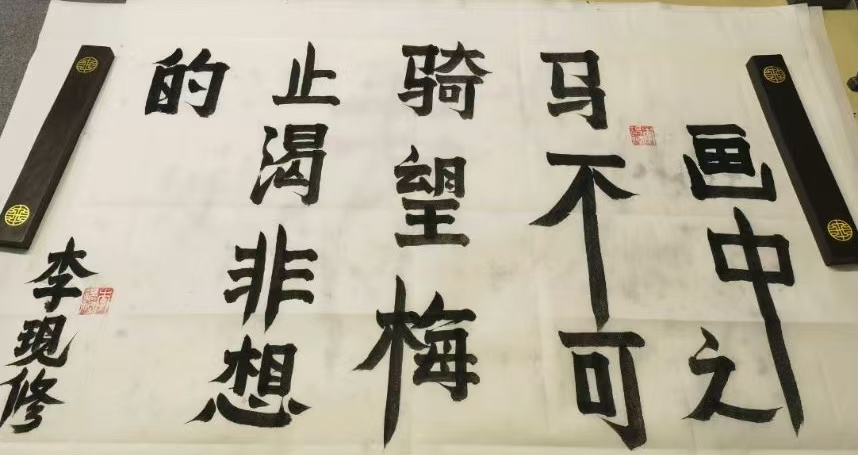 画中之
马不可
骑望梅
止渴非想
的
李现修